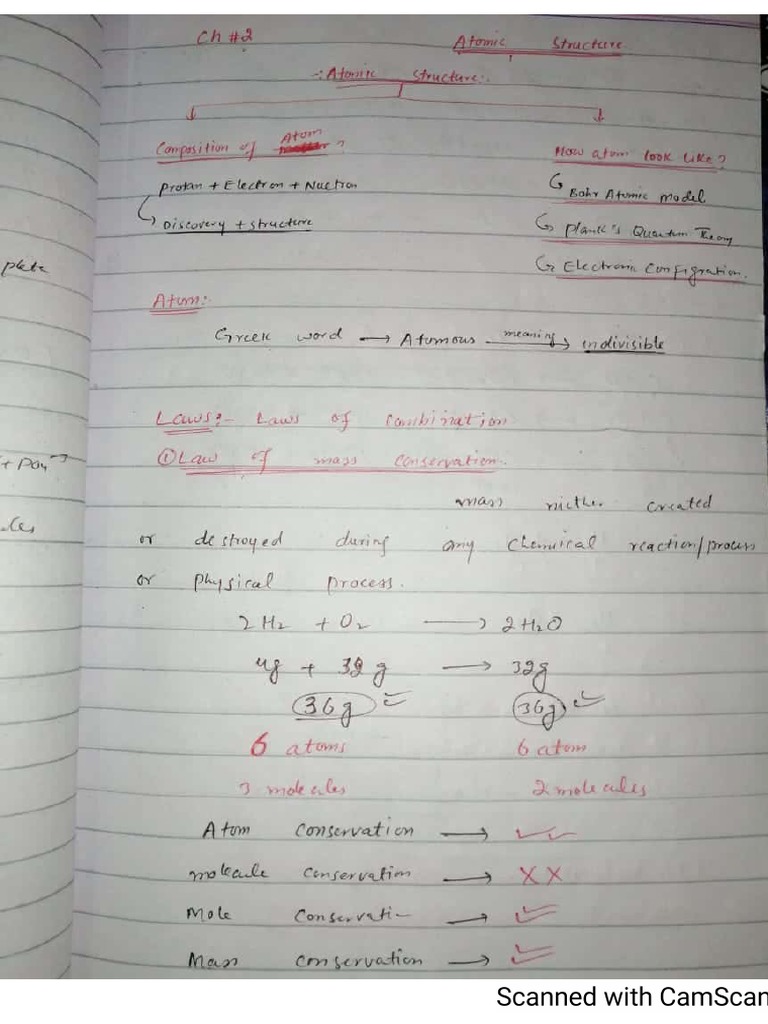 Ch #2 Atomic Structure
:- Atomic Structure:-
Composition of Atom ?
How atom look like?
Protan + Electron + Nuetron
Bohr Atomic model
Discovery + structure
Plank's Quantum Theory
Electronic Configration.
plete
Atom:
Greek word → Atomous meaning → indivisible
Laws:- Laws of Combination
① Law of mass Conservation.
mass niether created
or destroyed during any chemical reaction/process
or physical process.
2H2 + O2 → 2H2O
4g + 32g → 32g
36g 36g
6 atoms 6 atom
3 molecules 2 molecules
Atom conservation → ✓✓
molecule conservation → XX
Mole Conservati- → ✓
Mass conservation → ✓
Scanned with CamScan